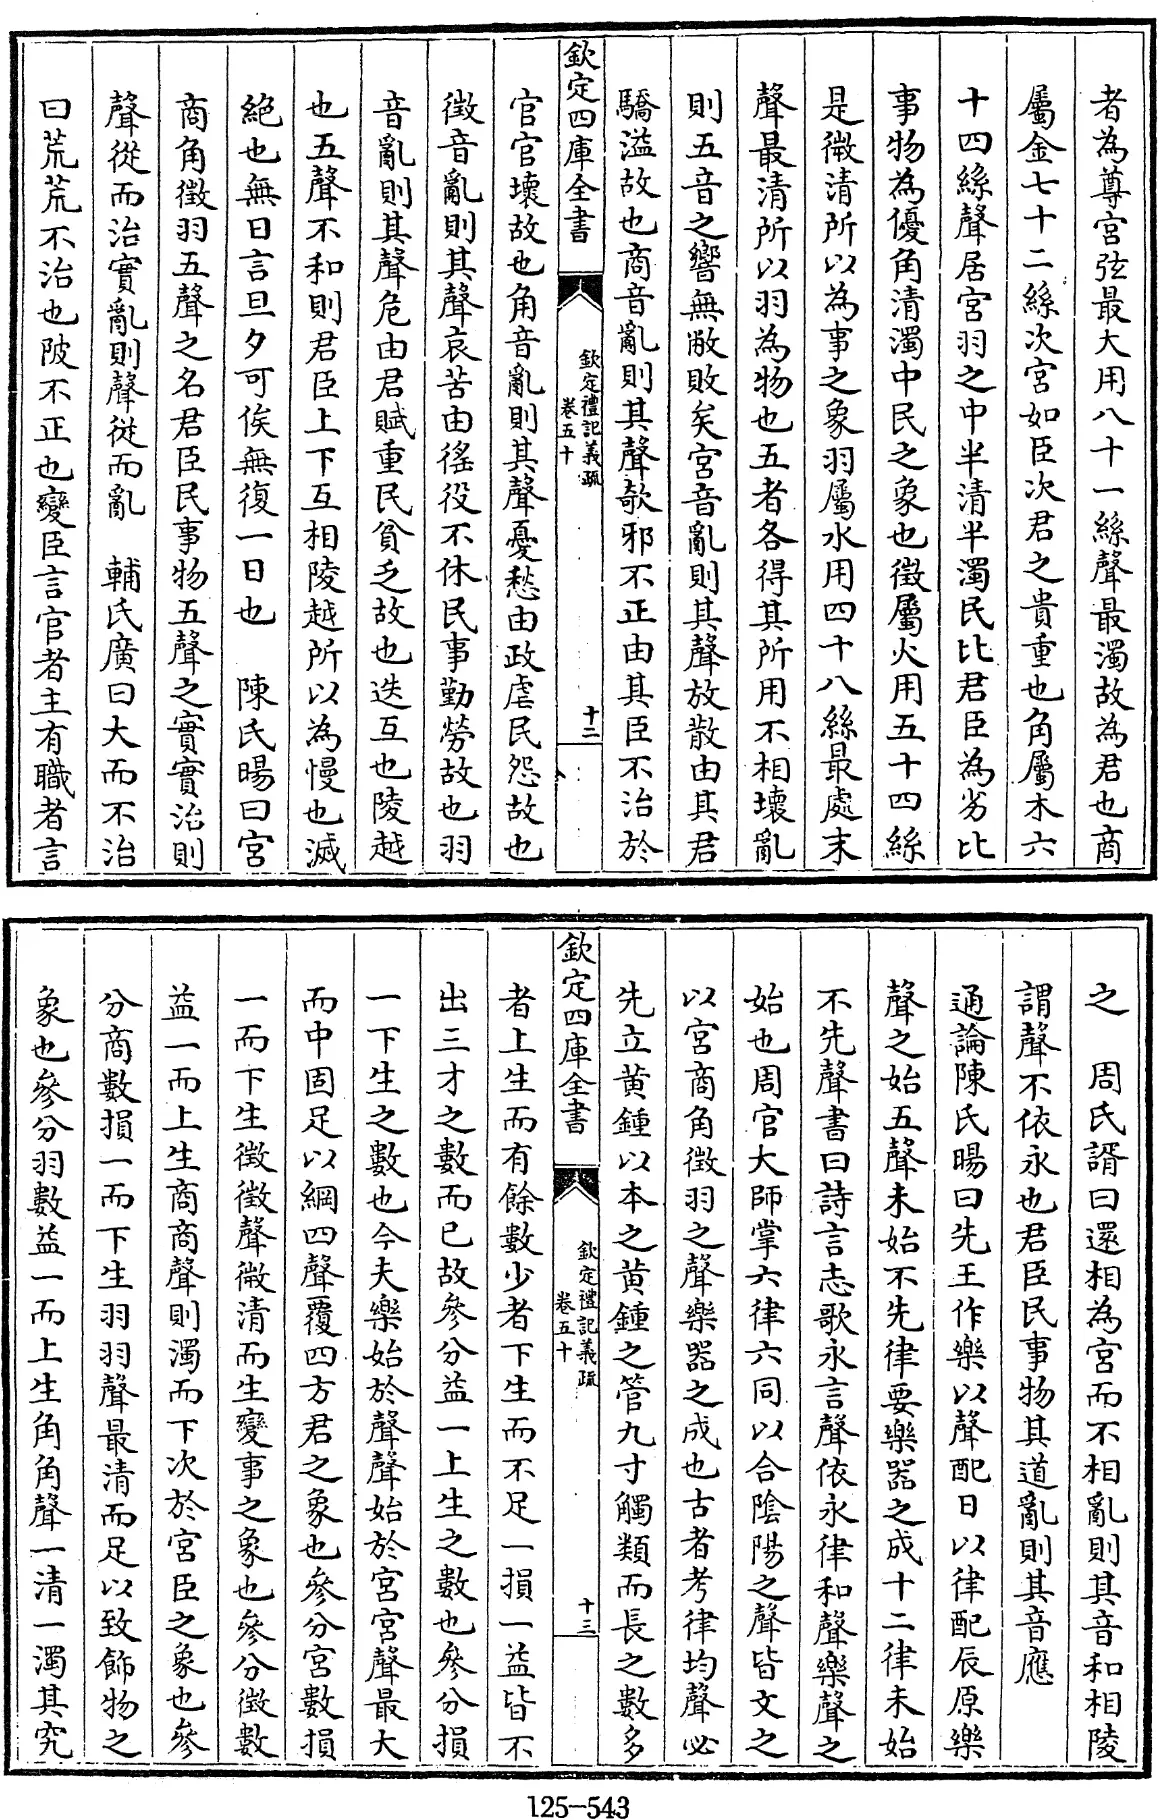 者為尊宮弦最大用八十一絲聲最濁故為君也商
屬金七十二絲次宮如臣次君之貴重也角屬木六
十四絲聲居宮羽之中半清半濁民比君臣為劣比
事物為優角清濁中民之象也徵屬火用五十四絲
是徵清所以為事之象羽屬水用四十八絲最處末
聲最清所以羽為物也五者各得其所用不相壞亂
則五音之響無敝敗矣宮音亂則其聲放散由其君
驕溢故也商音亂則其聲欹邪不正由其臣不治於
欽定四庫全書
欽定禮記義疏
卷五十
十二
官官壞故也角音亂則其聲憂愁由政虐民怨故也
徵音亂則其聲哀苦由徭役不休民事勤勞故也羽
音亂則其聲危由君賦重民貧乏故也迭互也陵越
也五聲不和則君臣上下互相陵越所以為慢也滅
絕也無日言旦夕可俟無復一日也 陳氏暘曰宮
商角徵羽五聲之名君臣民事物五聲之實實治則
聲從而治實亂則聲從而亂 輔氏廣曰大而不治
曰荒荒不治也陂不正也變臣言官者主有職者言
之 周氏諝曰還相為宮而不相亂則其音和相陵
謂聲不依永也君臣民事物其道亂則其音應
通論陳氏暘曰先王作樂以聲配日以律配辰原樂
聲之始五聲未始不先律要樂器之成十二律未始
不先聲書曰詩言志歌永言聲依永律和聲樂聲之
始也周官大師掌六律六同以合陰陽之聲皆文之
以宮商角徵羽之聲樂器之成也古者考律均聲必
先立黃鍾以本之黃鍾之管九寸觸類而長之數多
欽定四庫全書
欽定禮記義疏
卷五十
十三
者上生而有餘數少者下生而不足一損一益皆不
出三才之數而已故參分益一上生之數也參分損
一下生之數也今夫樂始於聲聲始於宮宮聲最大
而中固足以綱四聲覆四方君之象也參分宮數損
一而下生徵徵聲微清而生變事之象也參分徵數
益一而上生商商聲則濁而下次於宮臣之象也參
分商數損一而下生羽羽聲最清而足以致飾物之
象也參分羽數益一而上生角角聲一清一濁其究
125-543